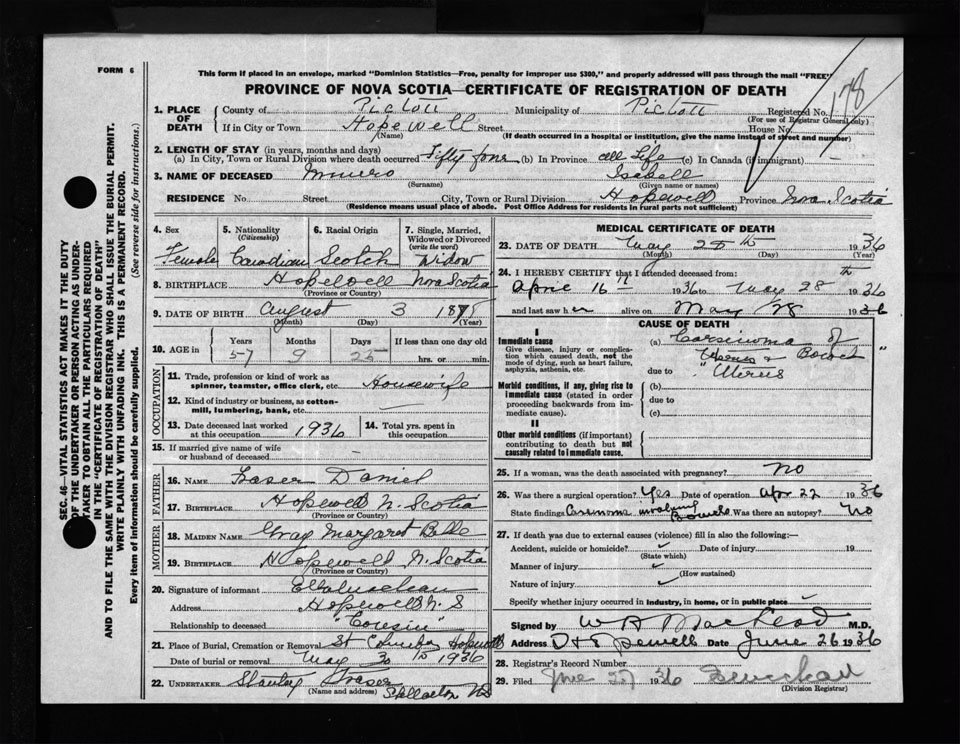 FORM 6
This form if placed in an envelope, marked "Dominion Statistics—Free, penalty for improper use $300," and properly addressed will pass through the mail "FREE"
PROVINCE OF NOVA SCOTIA—CERTIFICATE OF REGISTRATION OF DEATH
178
1. PLACE OF DEATH
County of Pictou Municipality of Pictou Registered No.
(For use of Registrar General only)
If in City or Town Hopewell Street House No.
(Name) (If death occurred in a hospital or institution, give the name instead of street and number)
2. LENGTH OF STAY (in years, months and days)
(a) In City, Town or Rural Division where death occurred Fifty four (b) In Province all Life (c) In Canada (if immigrant)
3. NAME OF DECEASED Munro Isabell
(Surname) (Given name or names)
RESIDENCE No. Street City, Town or Rural Division Hopewell Province Nova Scotia
(Residence means usual place of abode. Post Office Address for residents in rural parts not sufficient)
4. Sex
Female
5. Nationality
(Citizenship)
Canadian
6. Racial Origin
Scotch
7. Single, Married, Widowed or Divorced
(write the word)
Widow
8. BIRTHPLACE Hopewell Nova Scotia
(Province or Country)
9. DATE OF BIRTH August 3 1878
(Month) (Day) (Year)
10. AGE in Years Months Days If less than one day old
57 9 25 hrs. or min.
OCCUPATION
11. Trade, profession or kind of work as spinner, teamster, office clerk, etc. Housewife
12. Kind of industry or business, as cotton-mill, lumbering, bank, etc. —
13. Date deceased last worked at this occupation 1936
14. Total yrs. spent in this occupation
15. If married give name of wife or husband of deceased —
FATHER
16. NAME Fraser Daniel
17. BIRTHPLACE Hopewell N. Scotia
(Province or Country)
MOTHER
18. MAIDEN NAME Gray Margaret Belle
19. BIRTHPLACE Hopewell N. Scotia
(Province or Country)
20. Signature of informant
Address Hopewell N. S
Relationship to deceased "Cousin"
21. Place of Burial, Cremation or Removal St Columba Hopewell
Date of burial or removal May 30 1936
22. UNDERTAKER Stanley Fraser
(Name and address) Stellarton NS
MEDICAL CERTIFICATE OF DEATH
23. DATE OF DEATH May 28th 1936
(Month) (Day) (Year)
24. I HEREBY CERTIFY that I attended deceased from:
April 16th 1936 to May 28th 1936
and last saw her alive on May 28 1936
CAUSE OF DEATH
I
Immediate cause
Give disease, injury or complication which caused death, not the mode of dying, such as heart failure, asphyxia, asthenia, etc.
(a) Carsinoma of
due to "Uterus & Bowel"
Uterus
Morbid conditions, if any, giving rise to immediate cause (stated in order proceeding backwards from immediate cause).
(b)
due to
(c)
II
Other morbid conditions (if important) contributing to death but not causally related to immediate cause.
25. If a woman, was the death associated with pregnancy? No
26. Was there a surgical operation? Yes Date of operation Apr 22 1936
State findings Carsinoma involving Bowels Was there an autopsy? No
27. If death was due to external causes (violence) fill in also the following:—
Accident, suicide or homicide? Date of injury 19
(State which)
Manner of injury
(How sustained)
Nature of injury
Specify whether injury occurred in industry, in home, or in public place
Signed by W A MacLeod M.D.
Address Date June 26 1936
28. Registrar's Record Number
29. Filed June 27 1936
(Division Registrar)
SEC. 46—VITAL STATISTICS ACT MAKES IT THE DUTY OF THE UNDERTAKER OR PERSON ACTING AS UNDERTAKER TO OBTAIN ALL THE PARTICULARS REQUIRED IN THE "CERTIFICATE OF REGISTRATION OF DEATH" AND TO FILE THE SAME WITH THE DIVISION REGISTRAR WHO SHALL ISSUE THE BURIAL PERMIT.
WRITE PLAINLY WITH UNFADING INK. THIS IS A PERMANENT RECORD.
Every item of information should be carefully supplied. (See reverse side for instructions.)